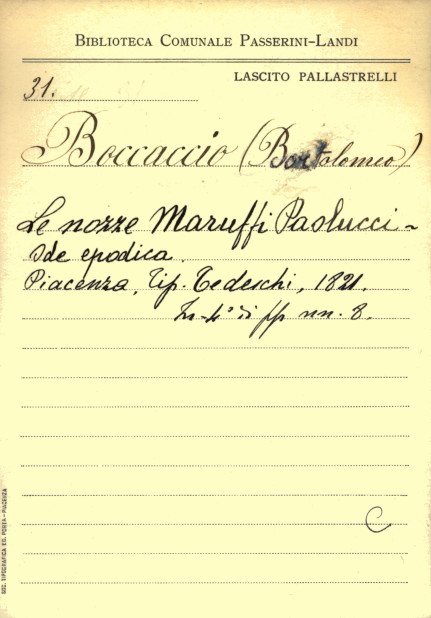 BIBLIOTECA COMUNALE PASSERINI-LANDI
LASCITO PALLASTRELLI
31.
Boccaccio (Bortolomeo)
Le nozze Maruffi Paolucci -
Ode epodica.
Piacenza, Tip. Tedeschi, 1821.
In-4° di pp nn. 8.
C
SOC. TIPOGRAFICA ED. PORTA - PIACENZA